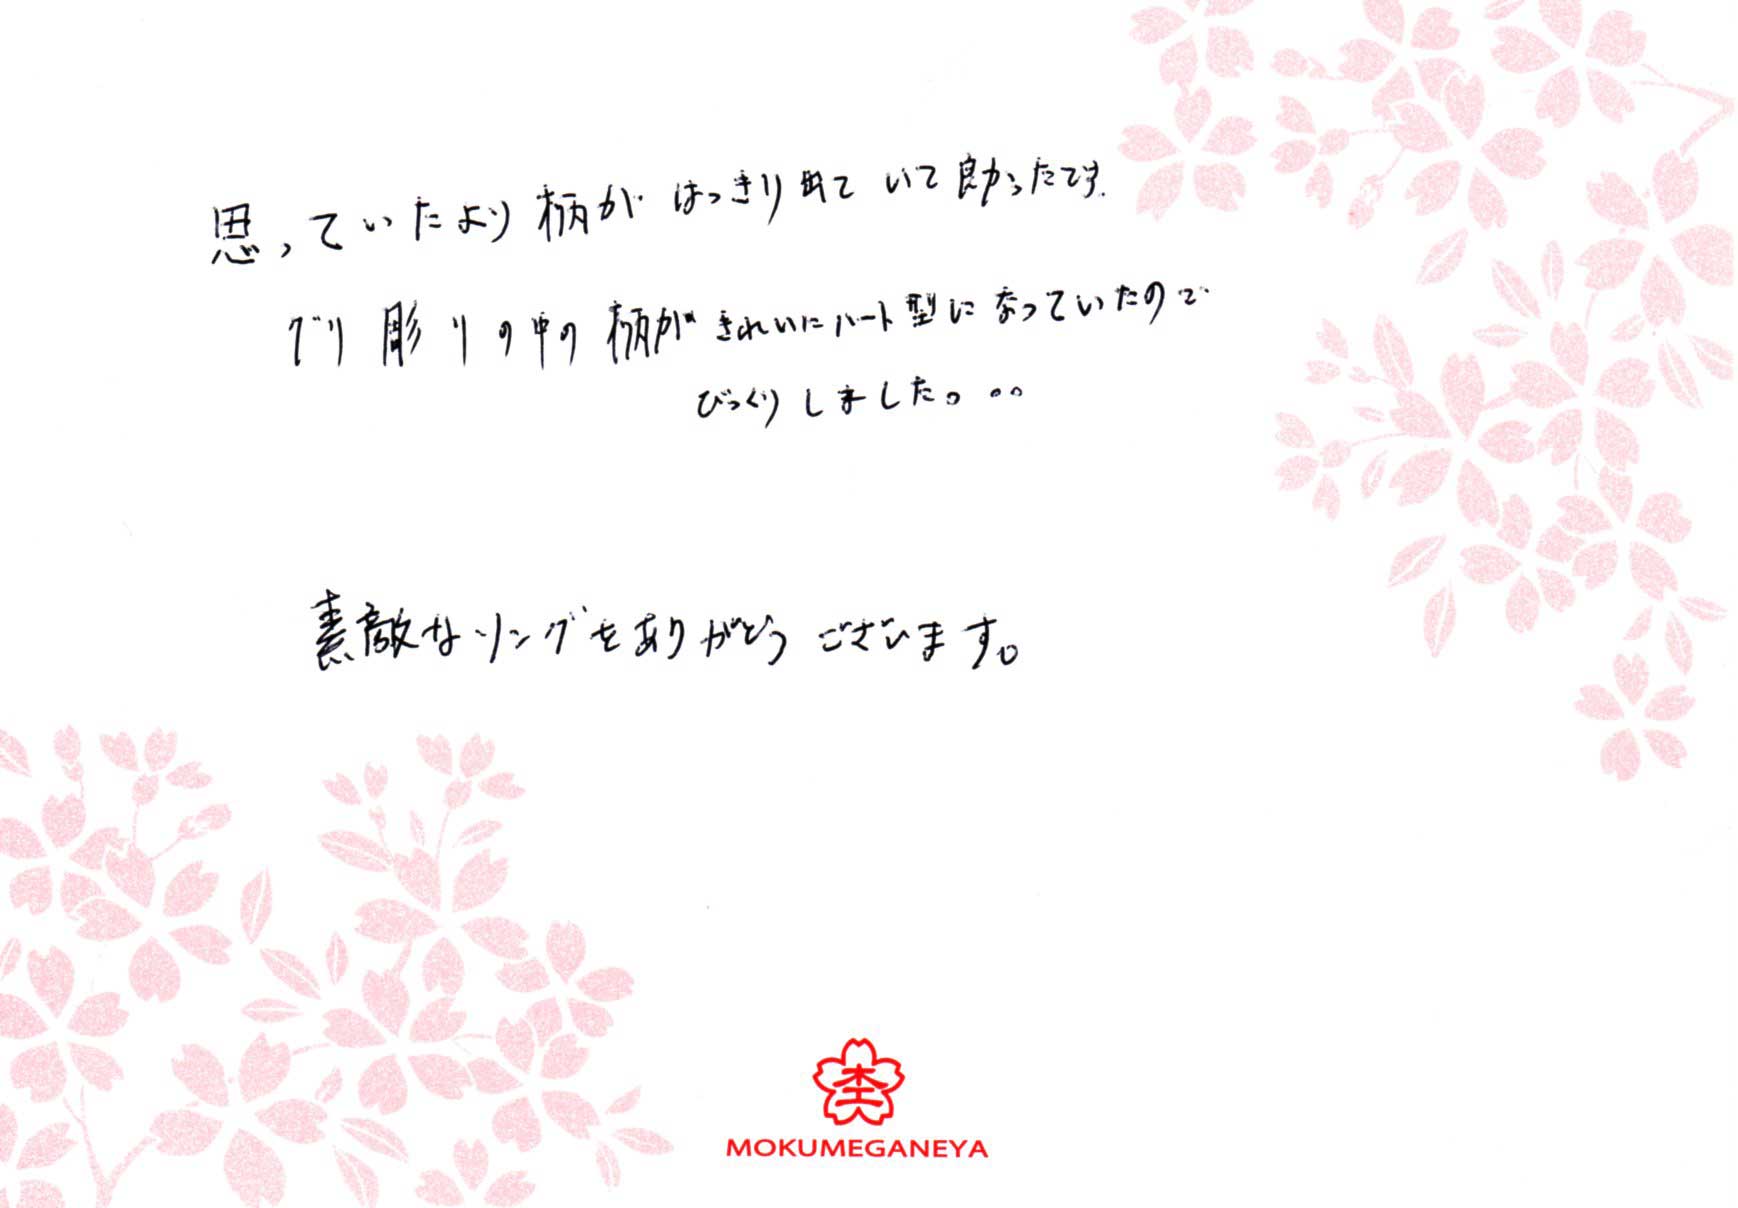 思っていたより柄がはっきり出ていて良かったです.
グリ彫りの中の柄がきれいにハート型になっていたので
びっくりしました。。。
素敵なリングをありがとうございます。
MOKUMEGANEYA